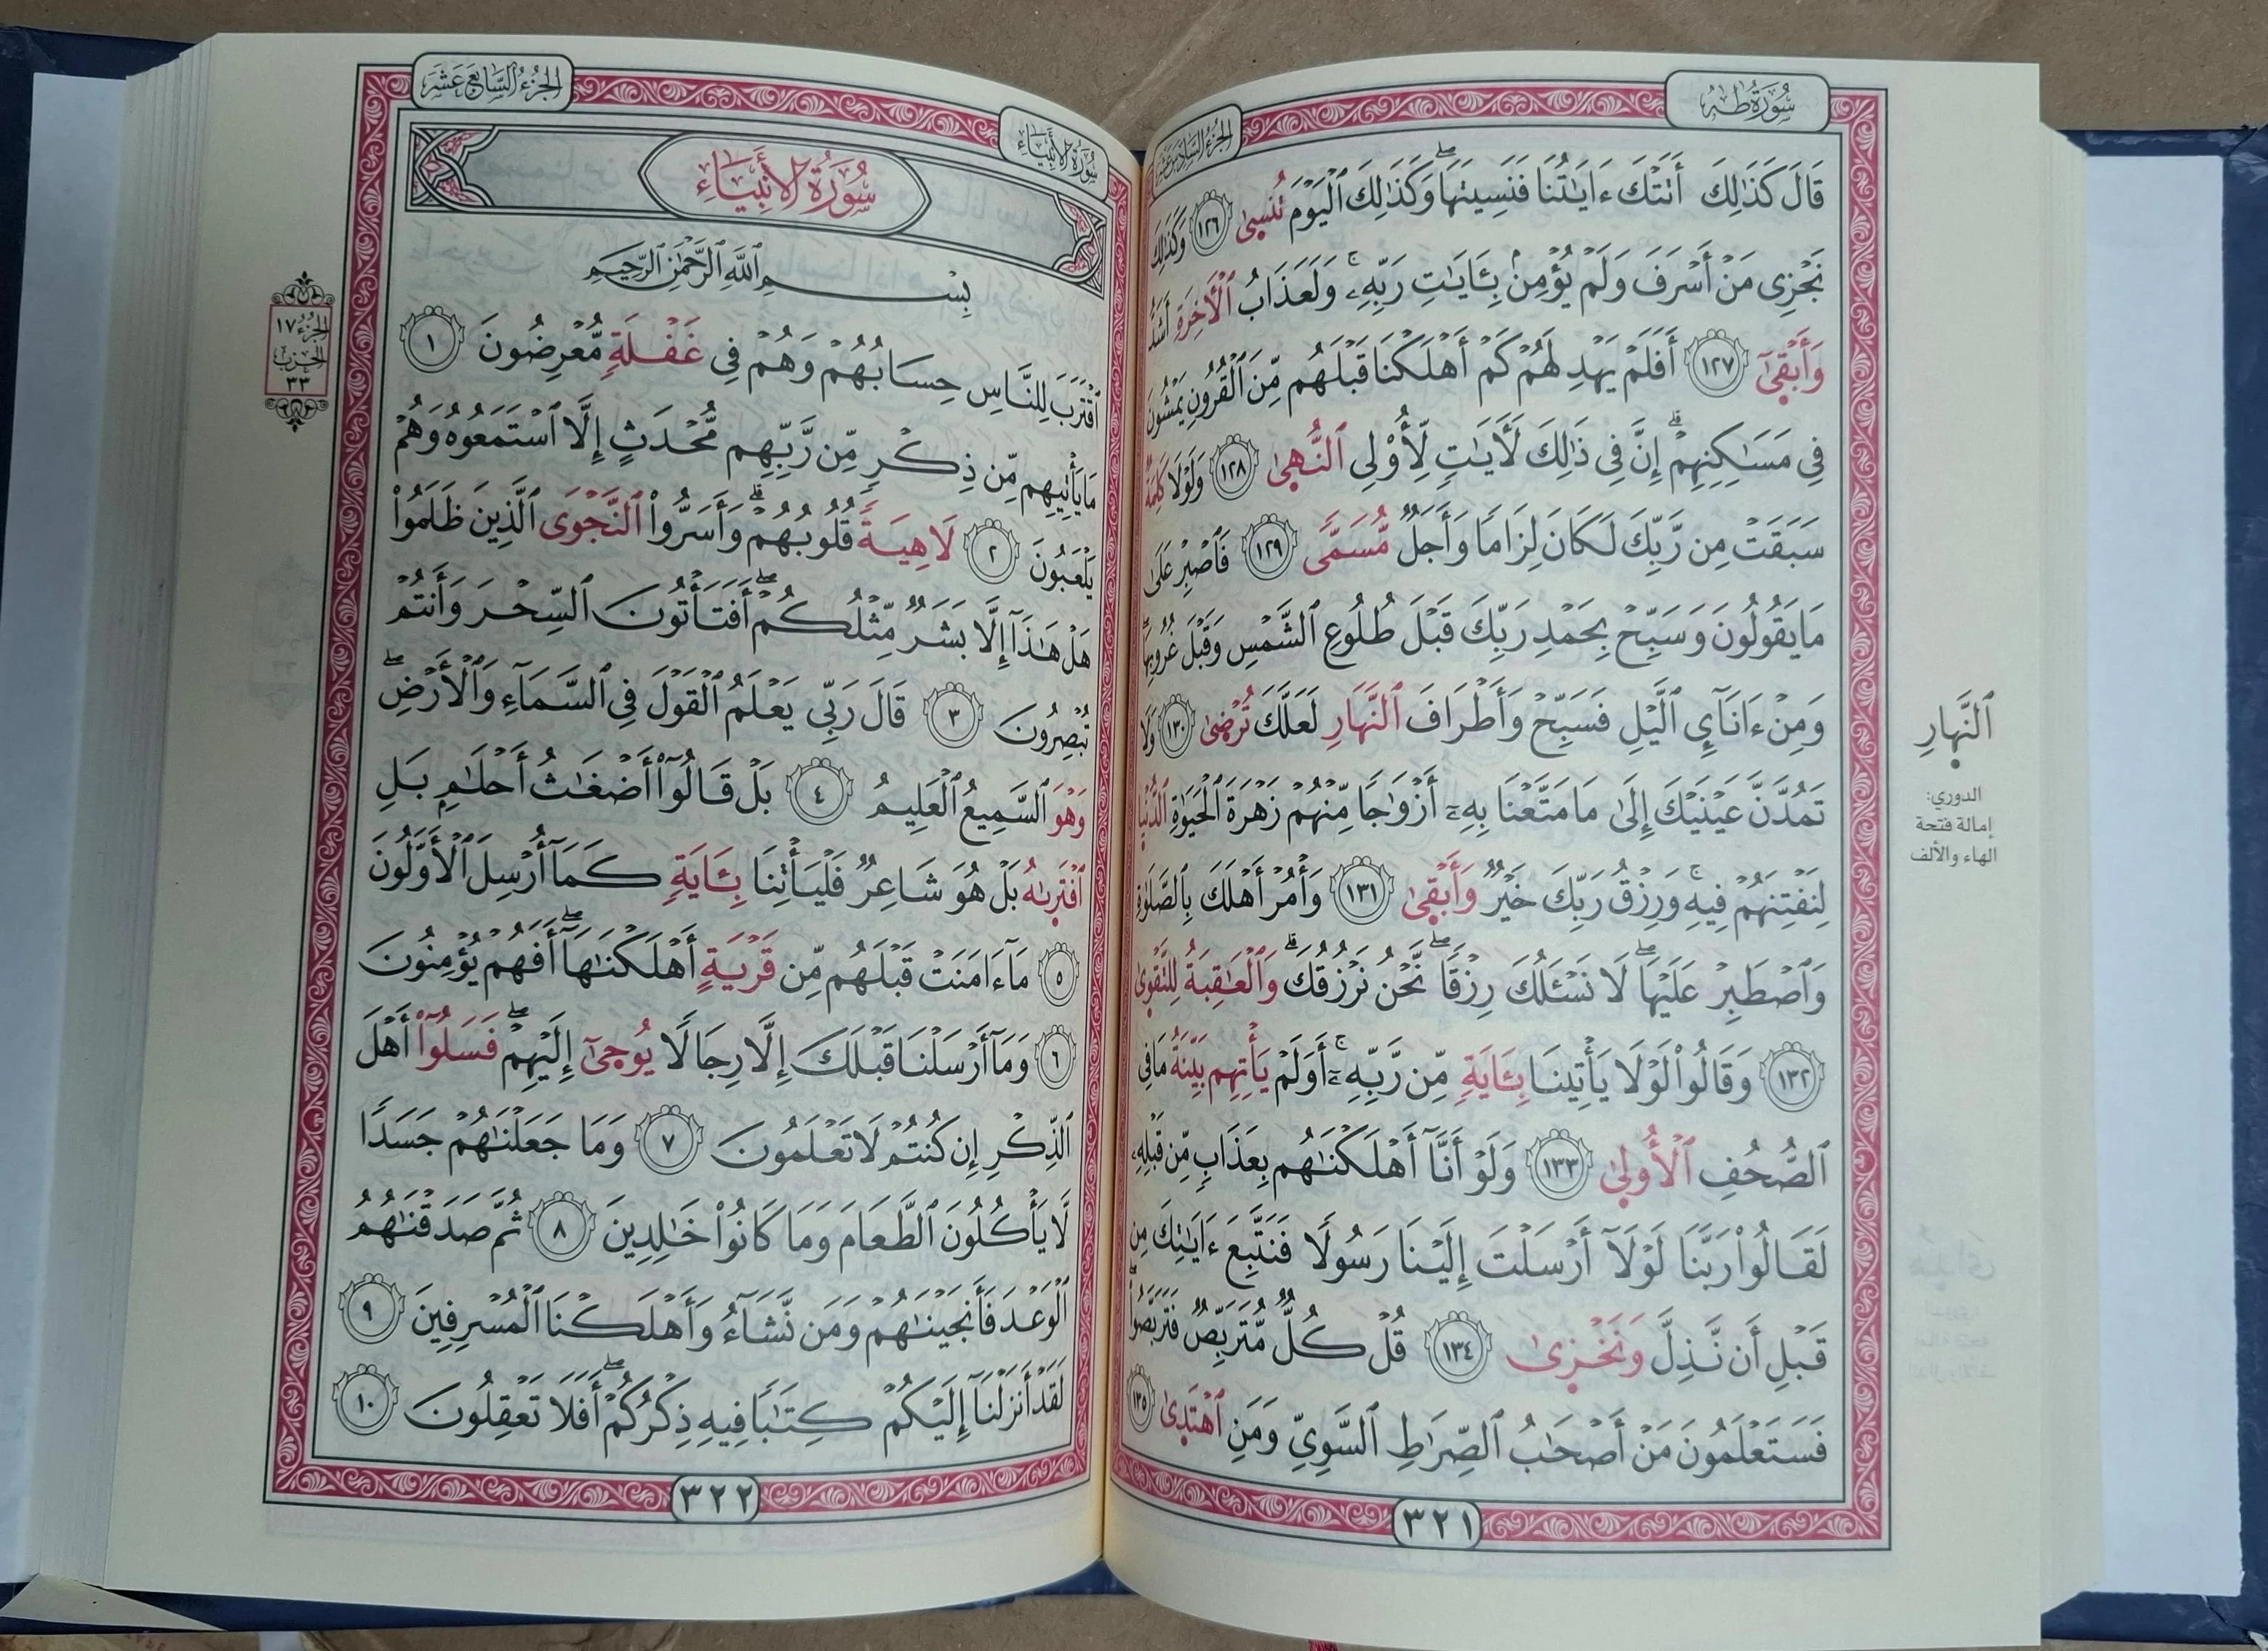 سُورَةُ طه
الجُزْءُ السَّادِسَ عَشَرَ
قَالَ كَذَٰلِكَ أَتَتْكَ ءَايَٰتُنَا فَنَسِيتَهَاۖ وَكَذَٰلِكَ ٱلْيَوْمَ تُنسَىٰ ١٢٦ وَكَذَٰلِكَ
نَجْزِى مَنْ أَسْرَفَ وَلَمْ يُؤْمِنۢ بِـَٔايَٰتِ رَبِّهِۦۚ وَلَعَذَابُ ٱلْأَخِرَةِ أَشَدُّ
وَأَبْقَىٰٓ ١٢٧ أَفَلَمْ يَهْدِ لَهُمْ كَمْ أَهْلَكْنَا قَبْلَهُم مِّنَ ٱلْقُرُونِ يَمْشُونَ
فِى مَسَٰكِنِهِمْۗ إِنَّ فِى ذَٰلِكَ لَأَيَٰتٍ لِّأُوْلِى ٱلنُّهَىٰ ١٢٨ وَلَوْلَا كَلِمَةٌ
سَبَقَتْ مِن رَّبِّكَ لَكَانَ لِزَامًا وَأَجَلٌ مُّسَمًّى ١٢٩ فَٱصْبِرْ عَلَىٰ
مَا يَقُولُونَ وَسَبِّحْ بِحَمْدِ رَبِّكَ قَبْلَ طُلُوعِ ٱلشَّمْسِ وَقَبْلَ غُرُوبِهَاۖ
وَمِنْ ءَانَآيِٕ ٱلَّيْلِ فَسَبِّحْ وَأَطْرَافَ ٱلنَّهَارِ لَعَلَّكَ تُرْضَىٰ ١٣٠ وَلَا
تَمُدَّنَّ عَيْنَيْكَ إِلَىٰ مَا مَتَّعْنَا بِهِۦٓ أَزْوَٰجًا مِّنْهُمْ زَهْرَةَ ٱلْحَيَوٰةِ ٱلدُّنْيَا
لِنَفْتِنَهُمْ فِيهِۚ وَرِزْقُ رَبِّكَ خَيْرٌ وَأَبْقَىٰ ١٣١ وَأْمُرْ أَهْلَكَ بِٱلصَّلَوٰةِ
وَٱصْطَبِرْ عَلَيْهَاۖ لَا نَسْـَٔلُكَ رِزْقًاۖ نَّحْنُ نَرْزُقُكَۗ وَٱلْعَٰقِبَةُ لِلتَّقْوَىٰ
١٣٢ وَقَالُواْ لَوْلَا يَأْتِينَا بِـَٔايَةٍ مِّن رَّبِّهِۦٓۚ أَوَلَمْ يَأْتِهِم بَيِّنَةُ مَا فِى
ٱلصُّحُفِ ٱلْأُولَىٰ ١٣٣ وَلَوْ أَنَّآ أَهْلَكْنَٰهُم بِعَذَابٍ مِّن قَبْلِهِۦ
لَقَالُواْ رَبَّنَا لَوْلَآ أَرْسَلْتَ إِلَيْنَا رَسُولًا فَنَتَّبِعَ ءَايَٰتِكَ مِن
قَبْلِ أَن نَّذِلَّ وَنَخْزَىٰ ١٣٤ قُلْ كُلٌّ مُّتَرَبِّصٌ فَتَرَبَّصُواْۖ
فَسَتَعْلَمُونَ مَنْ أَصْحَٰبُ ٱلصِّرَٰطِ ٱلسَّوِىِّ وَمَنِ ٱهْتَدَىٰ ١٣٥
ٱلنَّهَارِ
الدوري:
إمالة فتحة
الهاء والألف
٣٢١
سُورَةُ الأَنبِيَاءِ
الجُزْءُ السَّابِعَ عَشَرَ
سُورَةُ الأَنبِيَاءِ
بِسْمِ ٱللَّهِ ٱلرَّحْمَٰنِ ٱلرَّحِيمِ
ٱقْتَرَبَ لِلنَّاسِ حِسَابُهُمْ وَهُمْ فِى غَفْلَةٍ مُّعْرِضُونَ ١
مَا يَأْتِيهِم مِّن ذِكْرٍ مِّن رَّبِّهِم مُّحْدَثٍ إِلَّا ٱسْتَمَعُوهُ وَهُمْ
يَلْعَبُونَ ٢ لَاهِيَةً قُلُوبُهُمْۗ وَأَسَرُّواْ ٱلنَّجْوَى ٱلَّذِينَ ظَلَمُواْ
هَلْ هَٰذَآ إِلَّا بَشَرٌ مِّثْلُكُمْۖ أَفَتَأْتُونَ ٱلسِّحْرَ وَأَنتُمْ
تُبْصِرُونَ ٣ قَالَ رَبِّى يَعْلَمُ ٱلْقَوْلَ فِى ٱلسَّمَآءِ وَٱلْأَرْضِۖ
وَهْوَ ٱلسَّمِيعُ ٱلْعَلِيمُ ٤ بَلْ قَالُوٓاْ أَضْغَٰثُ أَحْلَٰمٍ بَلِ
ٱفْتَرَىٰهُ بَلْ هُوَ شَاعِرٌ فَلْيَأْتِنَا بِـَٔايَةٍ كَمَآ أُرْسِلَ ٱلْأَوَّلُونَ
٥ مَآ ءَامَنَتْ قَبْلَهُم مِّن قَرْيَةٍ أَهْلَكْنَٰهَآۖ أَفَهُمْ يُؤْمِنُونَ
٦ وَمَآ أَرْسَلْنَا قَبْلَكَ إِلَّا رِجَالًا يُوحَىٰٓ إِلَيْهِمْۖ فَسَلُوٓاْ أَهْلَ
ٱلذِّكْرِ إِن كُنتُمْ لَا تَعْلَمُونَ ٧ وَمَا جَعَلْنَٰهُمْ جَسَدًا
لَّا يَأْكُلُونَ ٱلطَّعَامَ وَمَا كَانُواْ خَٰلِدِينَ ٨ ثُمَّ صَدَقْنَٰهُمُ
ٱلْوَعْدَ فَأَنجَيْنَٰهُمْ وَمَن نَّشَآءُ وَأَهْلَكْنَا ٱلْمُسْرِفِينَ ٩
لَقَدْ أَنزَلْنَآ إِلَيْكُمْ كِتَٰبًا فِيهِ ذِكْرُكُمْۖ أَفَلَا تَعْقِلُونَ ١٠
الجُزْءُ ١٧
الحِزْب
٣٣
٣٢٢